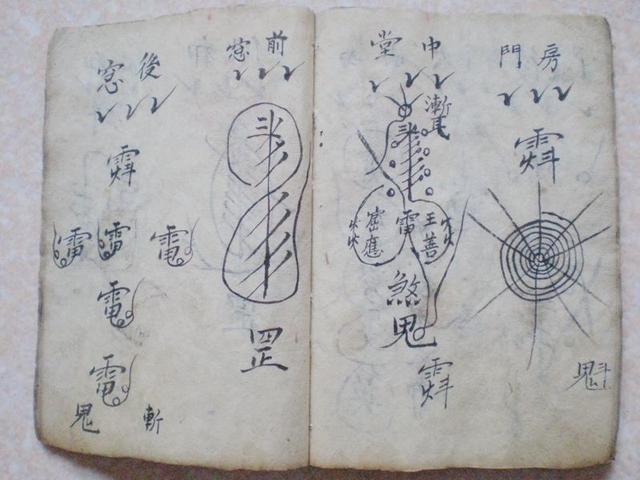 房門
魁
中堂
王善
雷
密應
煞
鬼
前窓
罡
後窓
電雷雷
電
電
斬鬼